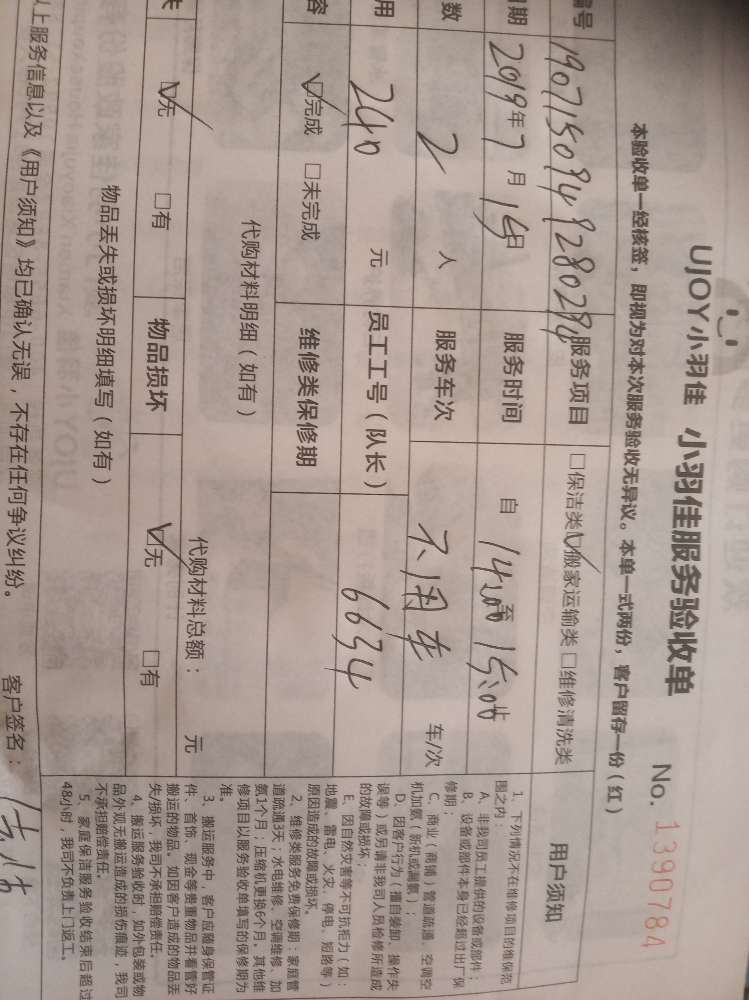 UJOY小羽佳 小羽佳服务验收单 No. 1390784
本验收单一经核签，即视为对本次服务验收无异议。本单一式两份，客户留存一份（红）
编号 190715094928029 服务项目 □保洁类 ☑搬家运输类 □维修清洗类
期 2019年7月15日 服务时间 自 14:00 至 15:00 止
数 2 人 服务车次 不用车 车/次
用 240 元 员工工号（队长） 6634
容 ☑完成 □未完成 维修类保修期
代购材料明细（如有） 代购材料总额： 元
失 ☑无 □有 物品损坏 ☑无 □有
物品丢失或损坏明细填写（如有）
以上服务信息以及《用户须知》均已确认无误，不存在任何争议纠纷。 客户签名：
用户须知
1、下列情况不在维修项目的维保范
围之内：
A、非我司员工提供的设备或部件；
B、设备或部件本身已经超过出厂保
修期；
C、商业（商铺）管道疏通、空调空
机加氨（新机或漏氨）；
D、因客户行为（擅自装卸、操作失
误等）或另请非我司人员检修所造成
的故障或损坏；
E、因自然灾害等不可抗拒力（如：
地震、雷电、火灾、停电、短路等）
原因造成的故障或损坏。
2、维修类服务免费保修期：家庭管
道疏通3天；水电维修、空调维修、加
氨1个月；压缩机更换6个月。其他维
修项目以服务验收单填写的保修期为
准。
3、搬运服务中，客户应随身保管证
件、首饰、现金等贵重物品并看管好
搬运的物品。如因客户造成的物品丢
失/损坏，我司不承担赔偿责任。
4、搬运服务验收时，如外包装或物
品外观无搬运造成的损伤痕迹，我司
不承担赔偿责任。
5、家庭保洁服务验收结束后超过
48小时，我司不负责上门返工。